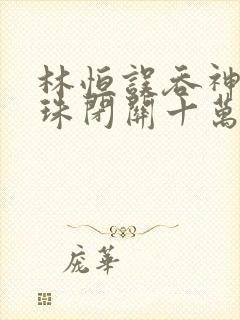 林恒誤吞神
珠閉關十萬
庞華